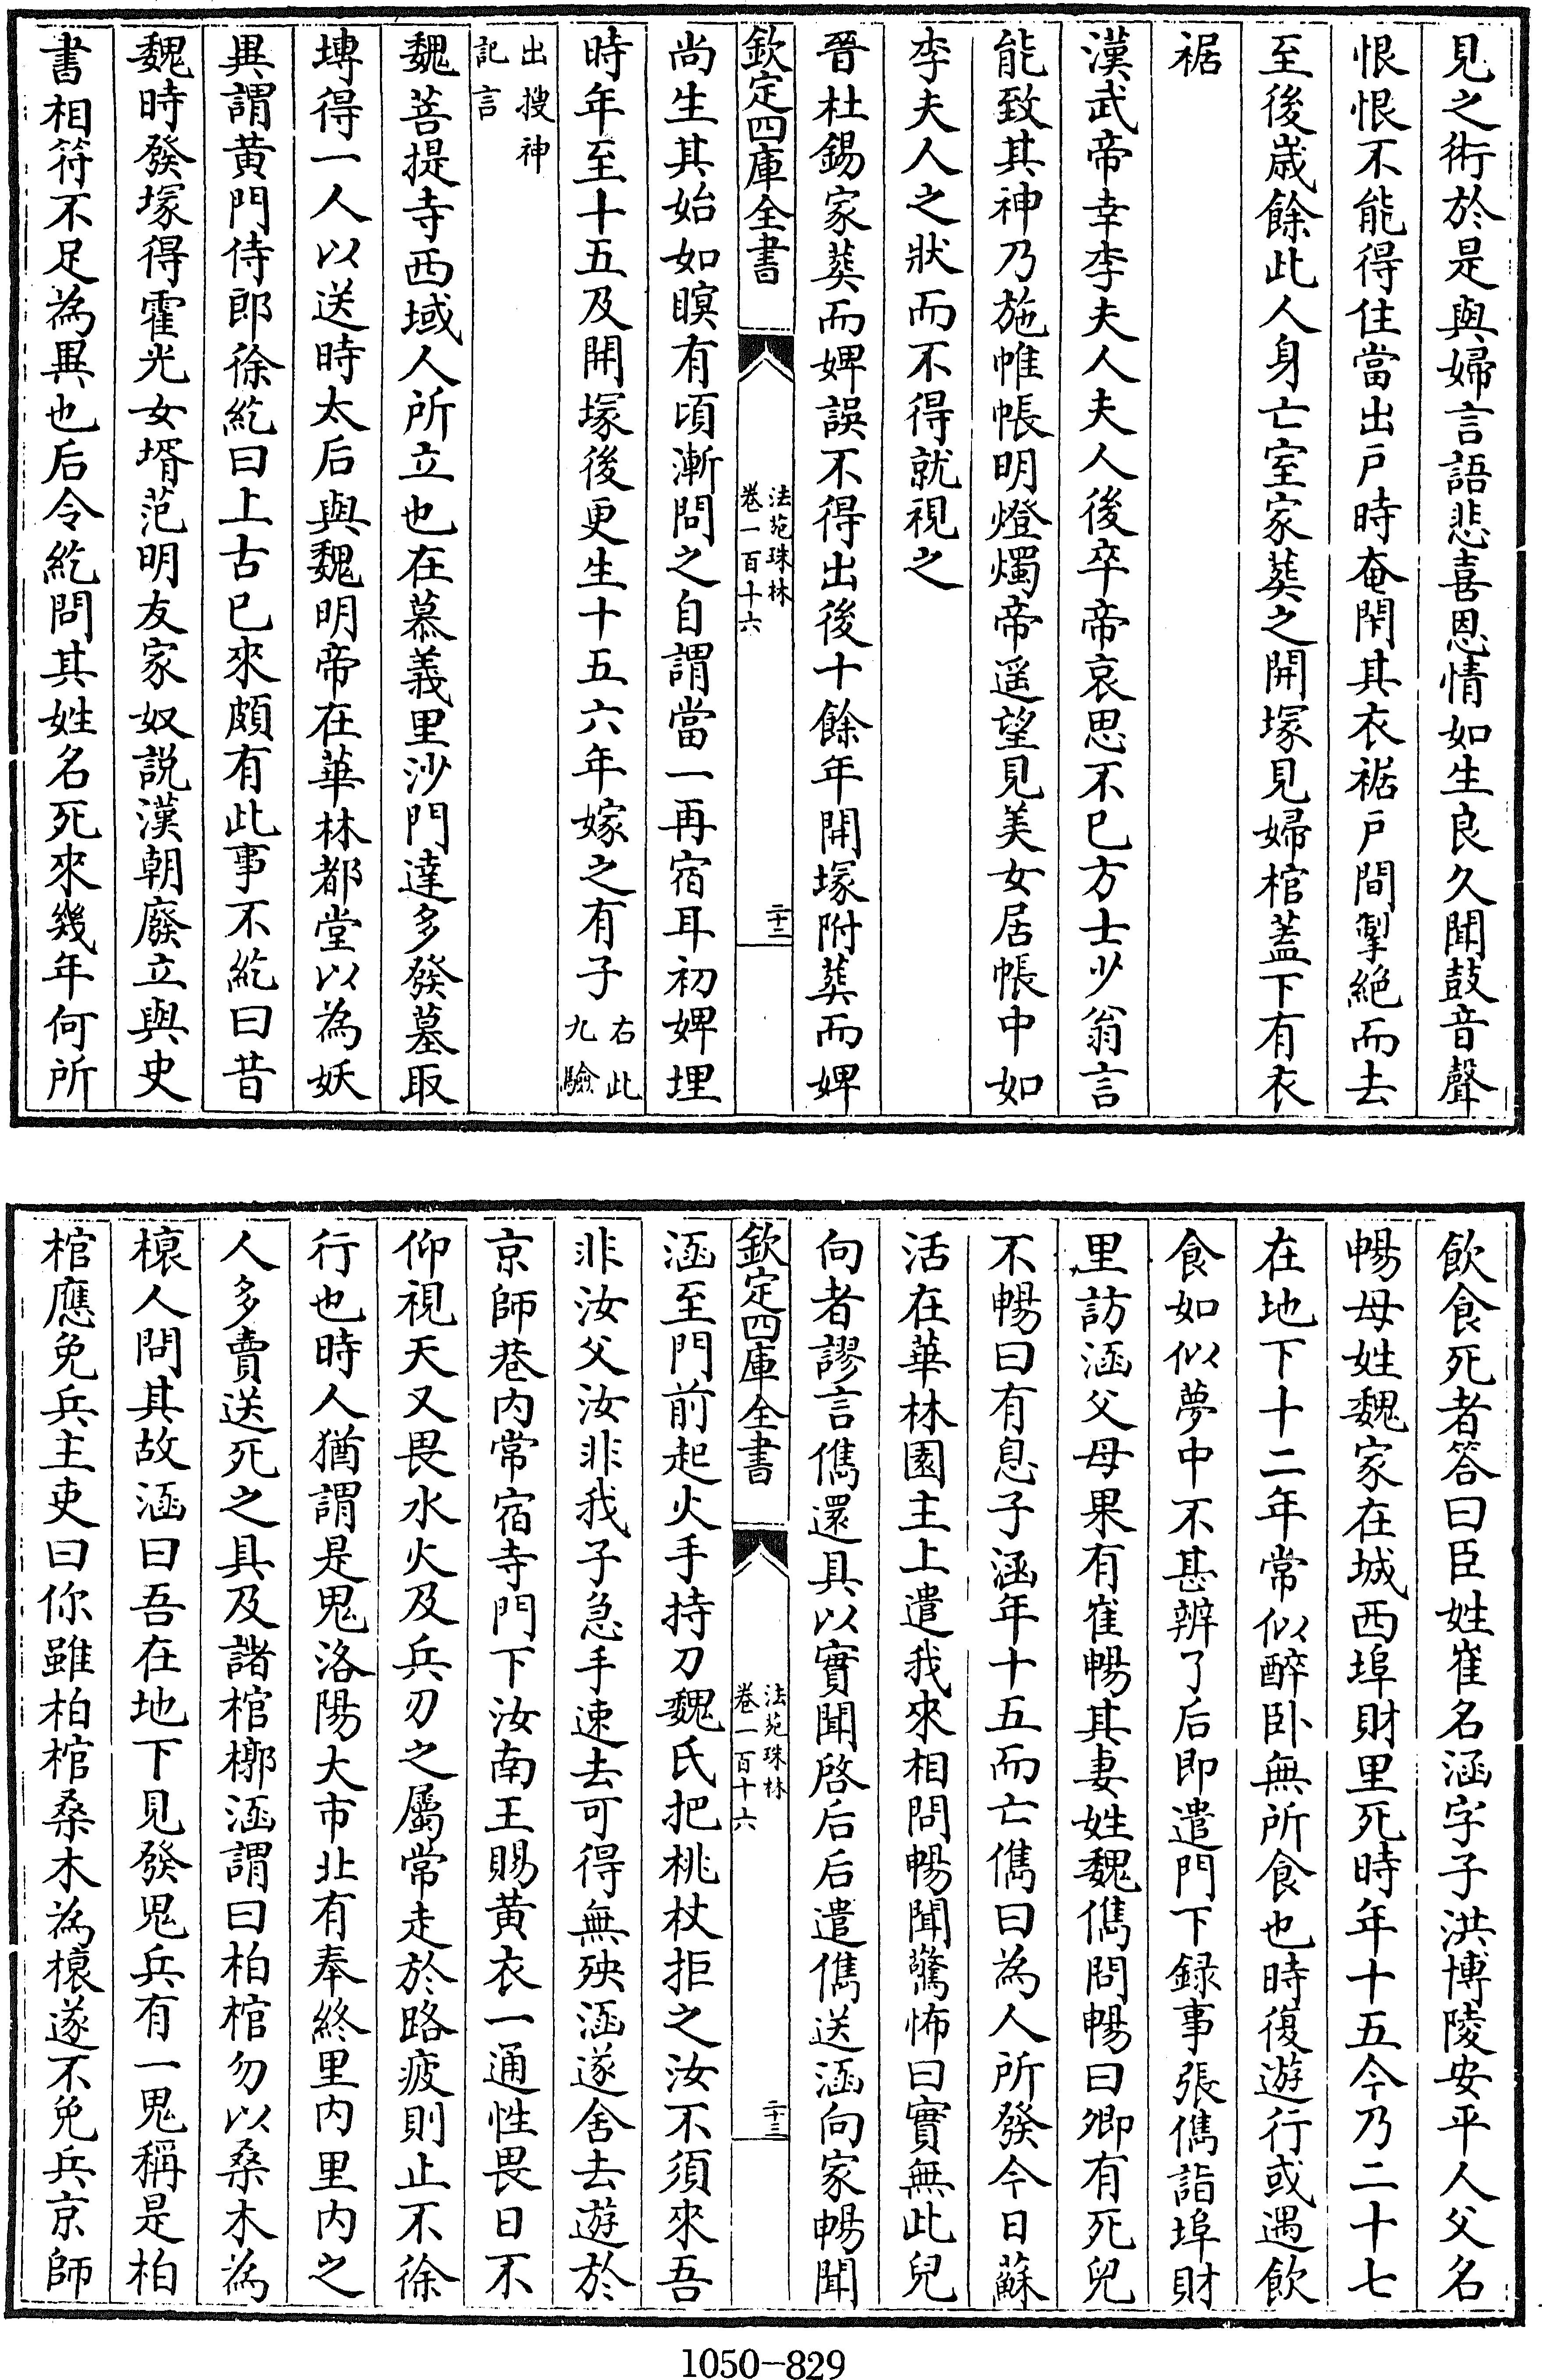 見之術於是與婦言語悲喜恩情如生良久聞鼓音聲
恨恨不能得住當出戸時奄閇其衣裾戸間掣絶而去
至後歳餘此人身亡室家葬之開塚見婦棺葢下有衣
裾
漢武帝幸李夫人夫人後卒帝哀思不已方士少翁言
能致其神乃施帷帳明燈燭帝遥望見美女居帳中如
李夫人之狀而不得就視之
晉杜錫家葬而婢誤不得出後十餘年開塚附葬而婢
欽定四庫全書
法苑珠林
卷一百十六
二十二
尚生其始如瞑有頃漸問之自謂當一再宿耳初婢埋
時年至十五及開塚後更生十五六年嫁之有子
右此
九驗
出搜神
記言
魏菩提寺西域人所立也在慕義里沙門達多發墓取
塼得一人以送時太后與魏明帝在華林都堂以為妖
異謂黄門侍郎徐紇曰上古已來頗有此事不紇曰昔
魏時發塚得霍光女壻范明友家奴説漢朝廢立與史
書相符不足為異也后令紇問其姓名死來幾年何所
飲食死者答曰臣姓崔名涵字子洪博陵安平人父名
暢母姓魏家在城西埠財里死時年十五今乃二十七
在地下十二年常似醉卧無所食也時復遊行或遇飲
食如似夢中不甚辨了后即遣門下録事張儁詣埠財
里訪涵父母果有崔暢其妻姓魏儁問暢曰卿有死兒
不暢曰有息子涵年十五而亡儁曰為人所發今日蘇
活在華林園主上遣我來相問暢聞驚怖曰實無此兒
向者謬言儁還具以實聞啓后后遣儁送涵向家暢聞
欽定四庫全書
法苑珠林
卷一百十六
二十三
涵至門前起火手持刀魏氏把桃杖拒之汝不須來吾
非汝父汝非我子急手速去可得無殃涵遂舍去遊於
京師巷内常宿寺門下汝南王賜黄衣一通性畏日不
仰視天又畏水火及兵刃之屬常走於路疲則止不徐
行也時人猶謂是鬼洛陽大市北有奉終里内里内之
人多賣送死之具及諸棺槨涵謂曰柏棺勿以桑木為
榱人問其故涵曰吾在地下見發鬼兵有一鬼稱是柏
棺應免兵主吏曰你雖柏棺桑木為榱遂不免兵京師
1050-829